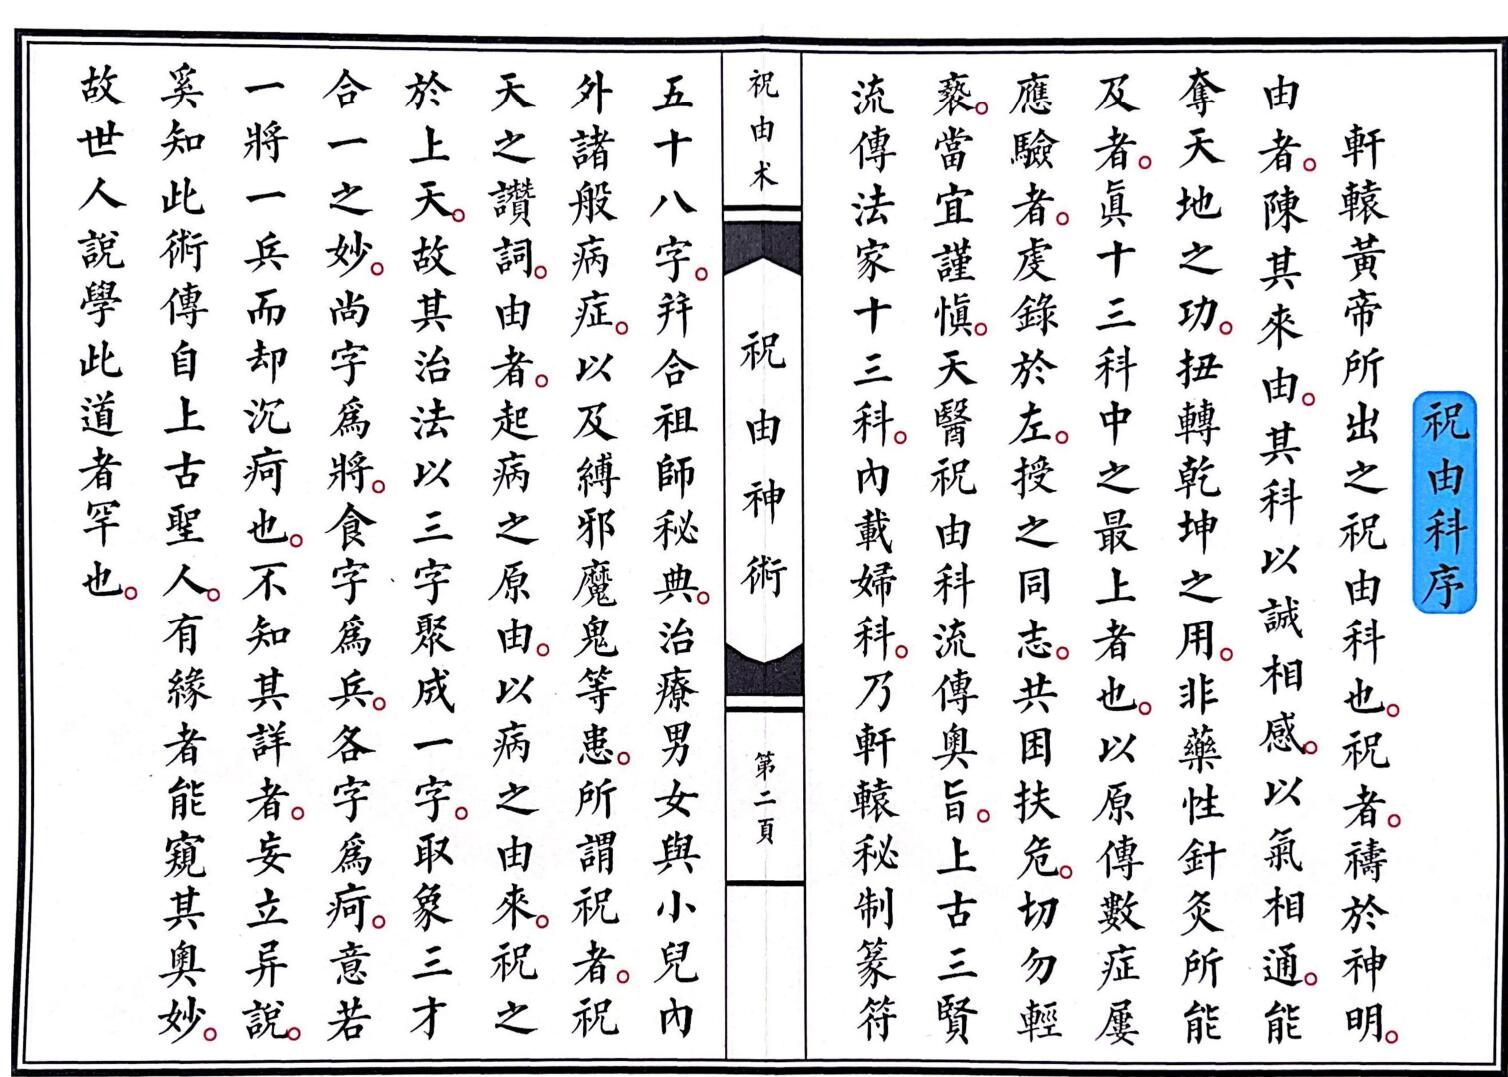 祝由科序
軒轅黃帝所出之祝由科也。祝者。禱於神明。
由者。陳其來由。其科以誠相感。以氣相通。能
奪天地之功。扭轉乾坤之用。非藥性針灸所能
及者。眞十三科中之最上者也。以原傳數症屢
應驗者。虔錄於左。授之同志。共困扶危。切勿輕
褻。當宜謹慎。天醫祝由科流傳奧旨。上古三賢
流傳法家十三科。內載婦科。乃軒轅秘制篆符
祝由术
祝由神術
第二頁
五十八字。幷合祖師秘典。治療男女與小兒內
外諸般病症。以及縛邪魔鬼等患。所謂祝者。祝
天之讚詞。由者。起病之原由。以病之由來。祝之
於上天。故其治法以三字聚成一字。取象三才
合一之妙。尚字爲將。食字爲兵。各字爲疴。意若
一將一兵而却沉疴也。不知其詳者。妄立异說。
奚知此術傳自上古聖人。有緣者能窺其奧妙。
故世人說學此道者罕也。